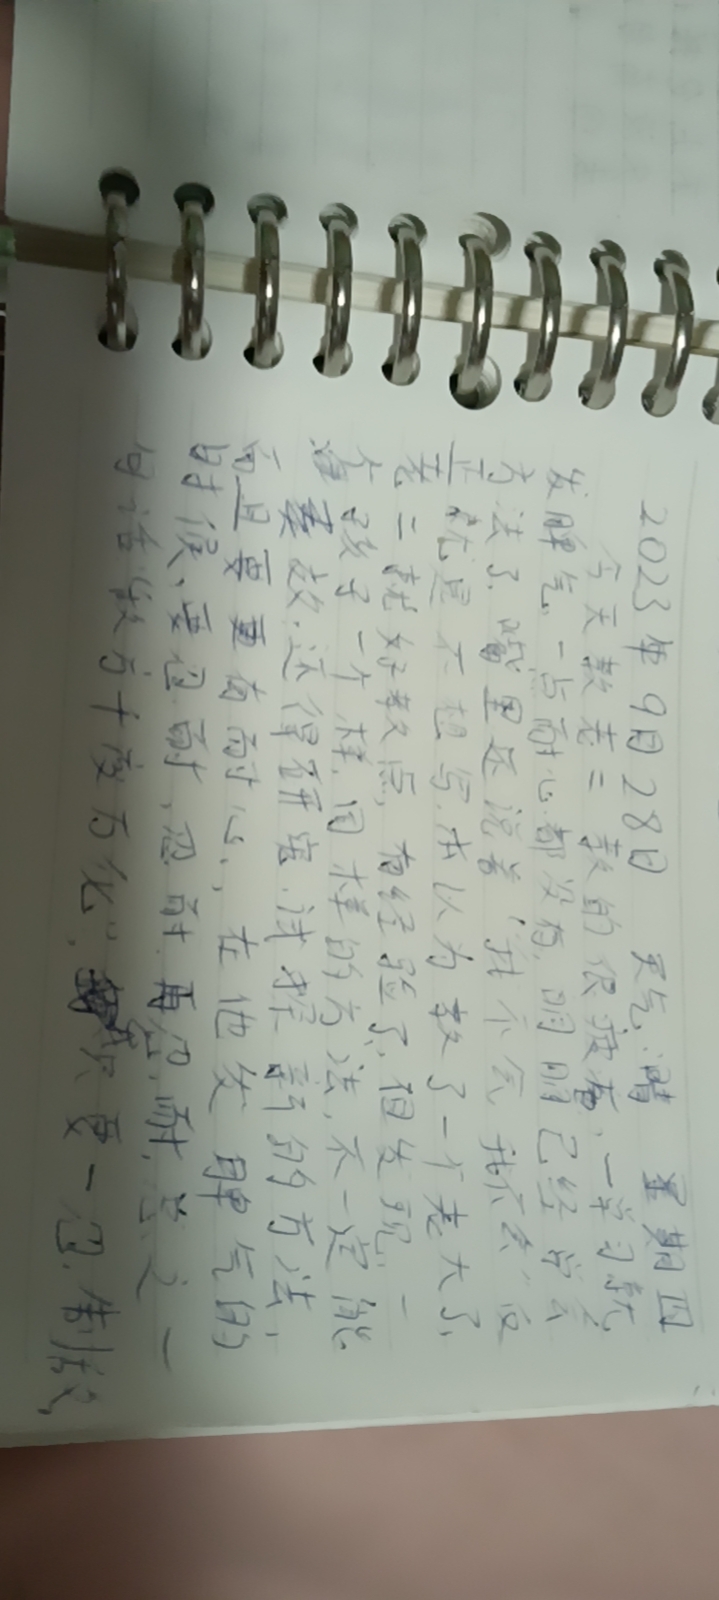 2023年9月28日 天气:晴 星期四
今天教老二教的很疲惫、一学习就
发脾气,一点耐心都没有,明明已经学会
方法了,嘴里还说着,我不会我不会,反
正就是不想写.本以为教了一个老大了,
老二就好教点,有经验了,但发现,一
个孩子一个样,同样的方法,不一定能
凑效.还得研究.试探新的方法,
而且要更有耐心,在他发脾气的
时候,要忍耐,忍耐.再忍耐,总之一
句话教方千变万化,只要一忍制敌,